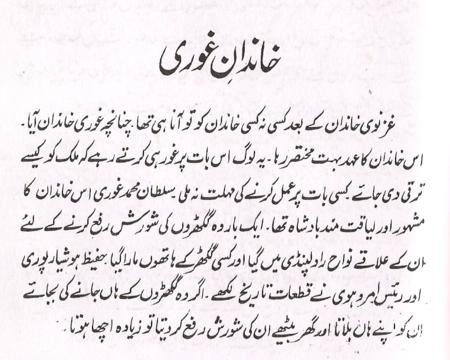 خاندانِ غوری
غزنوی خاندان کے بعد کسی نہ کسی خاندان کو تو آنا ہی تھا۔ چنانچہ غوری خاندان آیا۔
اس خاندان کا عہد بہت مختصر رہا۔ یہ لوگ اس بات پر غور ہی کرتے رہے کہ ملک کو کیسے
ترقی دی جائے۔ کسی بات پر عمل کرنے کی مہلت نہ ملی۔ سلطان محمد غوری اس خاندان کا
مشہور اور لیاقت مند بادشاہ تھا۔ ایک بار وہ گکھڑوں کی شورش رفع کرنے کے لئے
ان کے علاقے نواح راولپنڈی میں گیا اور کسی گکھڑ کے ہاتھوں مارا گیا۔ حفیظ ہوشیارپوری
اور رئیس امروہوی نے قطعات تاریخ لکھے۔ اگر وہ گکھڑوں کے ہاں جانے کی بجائے
ان کو اپنے ہاں بلاتا اور گھر بیٹھے ان کی شورش رفع کر دیتا تو زیادہ اچھا ہوتا۔